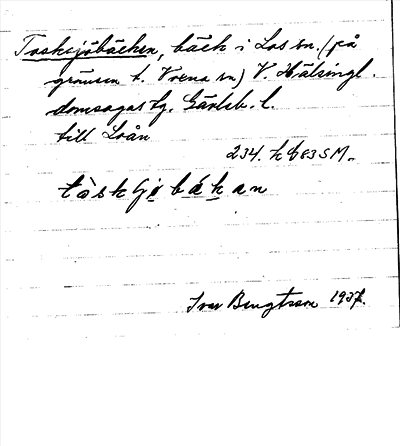 Tosksjöbäcken, bäck i Los sn. (på
gränsen t. Voxna sn) V. Hälsingl.
domsagas tg. Gävleb. l.
till Loån
234.
tòskʃjöbäkan
Ivar Bengtsson 1937.